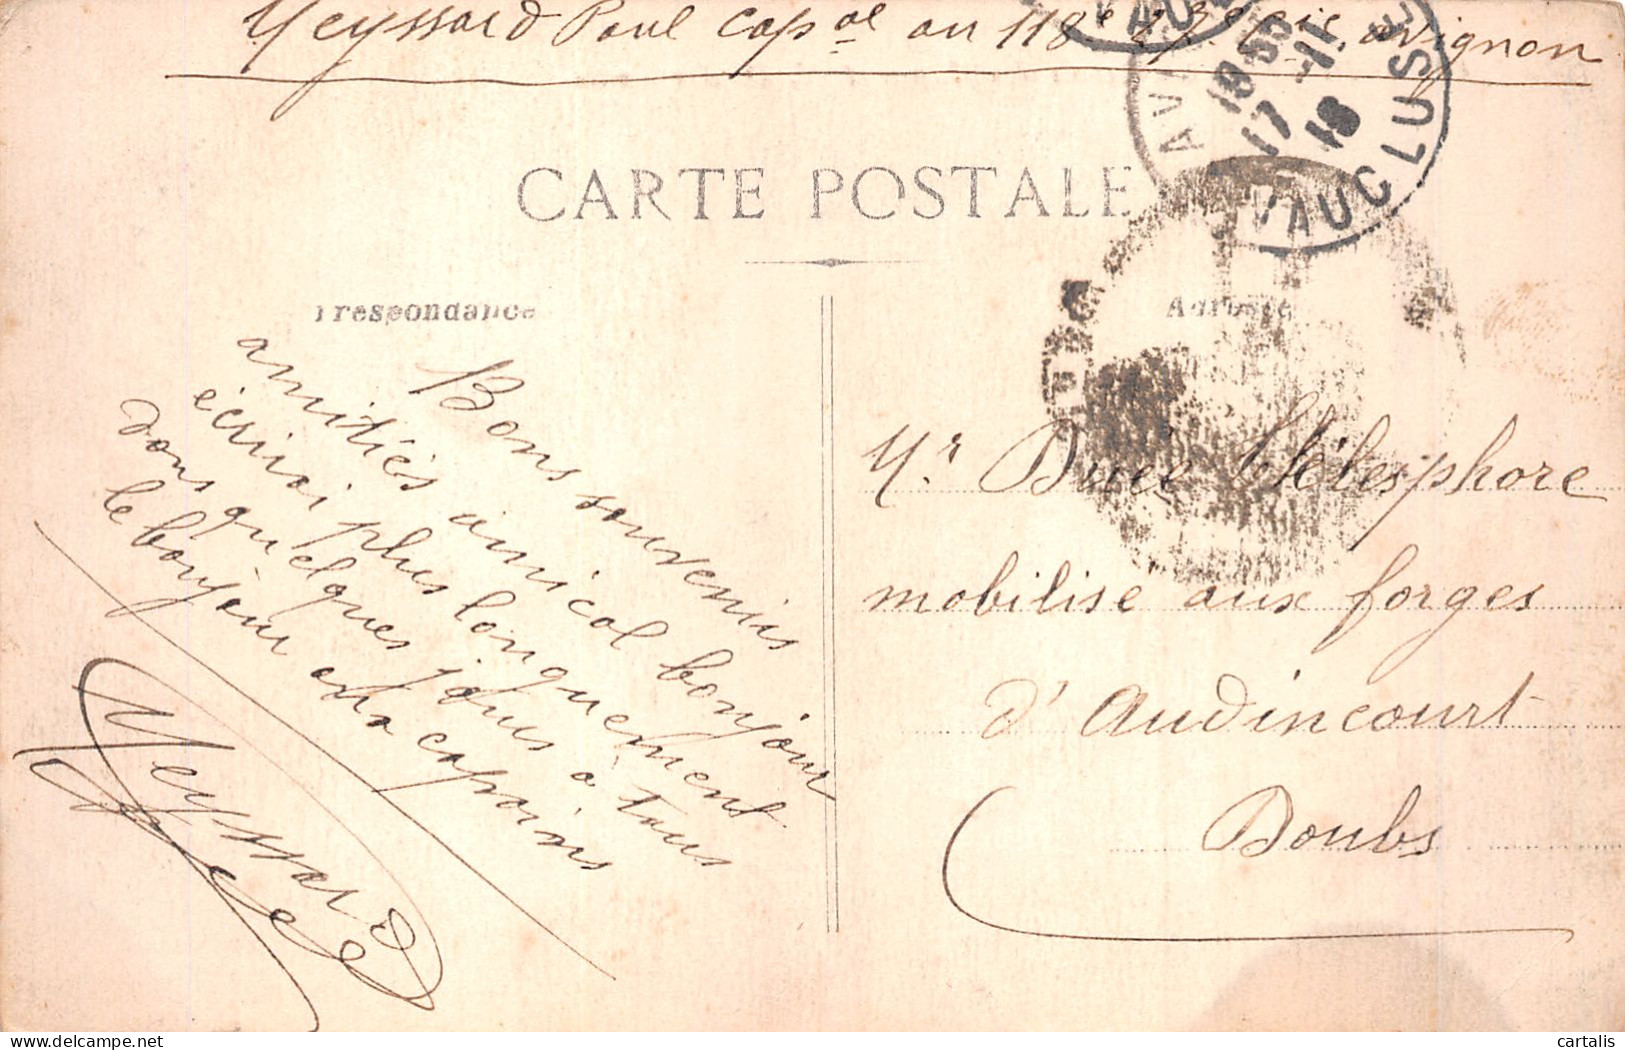 Meyssard Paul capal au 118e 27e Cie avignon
AVIGNON
18 55
17 -11
18
VAUCLUSE
CARTE POSTALE
rrespondance
Adresse
Bons souvenirs
amitiés amical bonjour
écrirai plus longuement
dans quelques jours à tous
le bonjour aux copains
Meyssard
Mr Durée Télesphore
mobilisé aux forges
d'Audincourt
Doubs
cartalis
delcampe.net